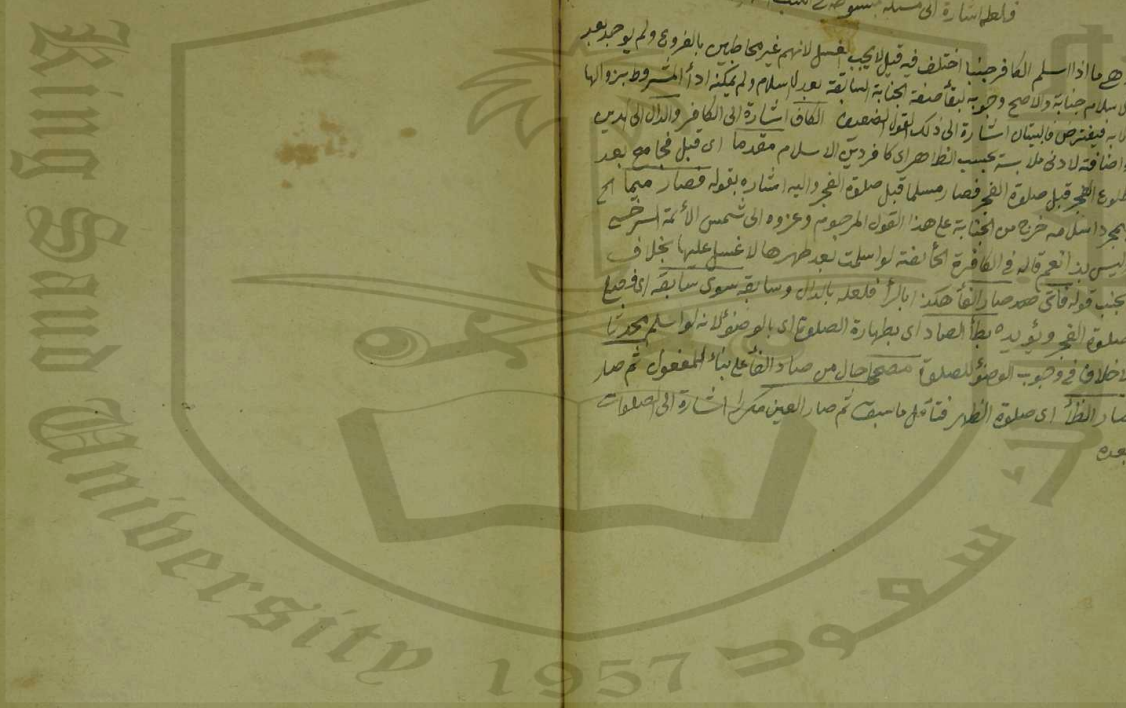 فلعله اشارة الى مسئلة
هي ما اذا اسلم الكافر جنبا اختلف فيه قيل لا يجب الغسل لانهم غير مخاطبين بالفروع ولم يوجد بعد
الاسلام جنابة والاصح وجوبه لبقأ صفة الجنابة السابقة بعد الاسلام ولم يمكنه ادأ المشروط بزوالها
الا به فيفترض فالبيتان اشارة الى ذلك القول الضعيف الكاف اشارة الى الكافر والدال الى الدين
واضافته لادنى ملابسة بحسب الظاهر اى كافر دين الاسلام مقدما اى قبل فجامع بعد
طلوع الفجر قبل صلوة الفجر فصار مسلما قبل صلوة الفجر واليه اشاره بقوله فصار الخ
بمجرد اسلامه خرج من الجنابة على هذا القول المرجوم وعزوه الى شمس الأئمة السرخسى
وليس بذا نعم قاله فى الكافرة الحائضة لو اسلمت بعد طهرها لا غسل عليها بخلاف
الجنب قوله فأتى صاد الفأ هكذا بالرأ فلعله بالدال وسابقه سوى سابقه اى
صلوة الفجر ويؤيده بطأ الصاد اى بطهارة الصلوة اى بالوضوء لانه لو اسلم محدثا
لا خلاف فى وجوب الوضوء للصلوة مصححا حال من صاد الفأ على بناء المفعول ثم صار
صاد الظأ اى صلوة الظهر فتأمل ما سبق ثم صار العين اشارة الى الصلوات
بعده
King Saud University 1957